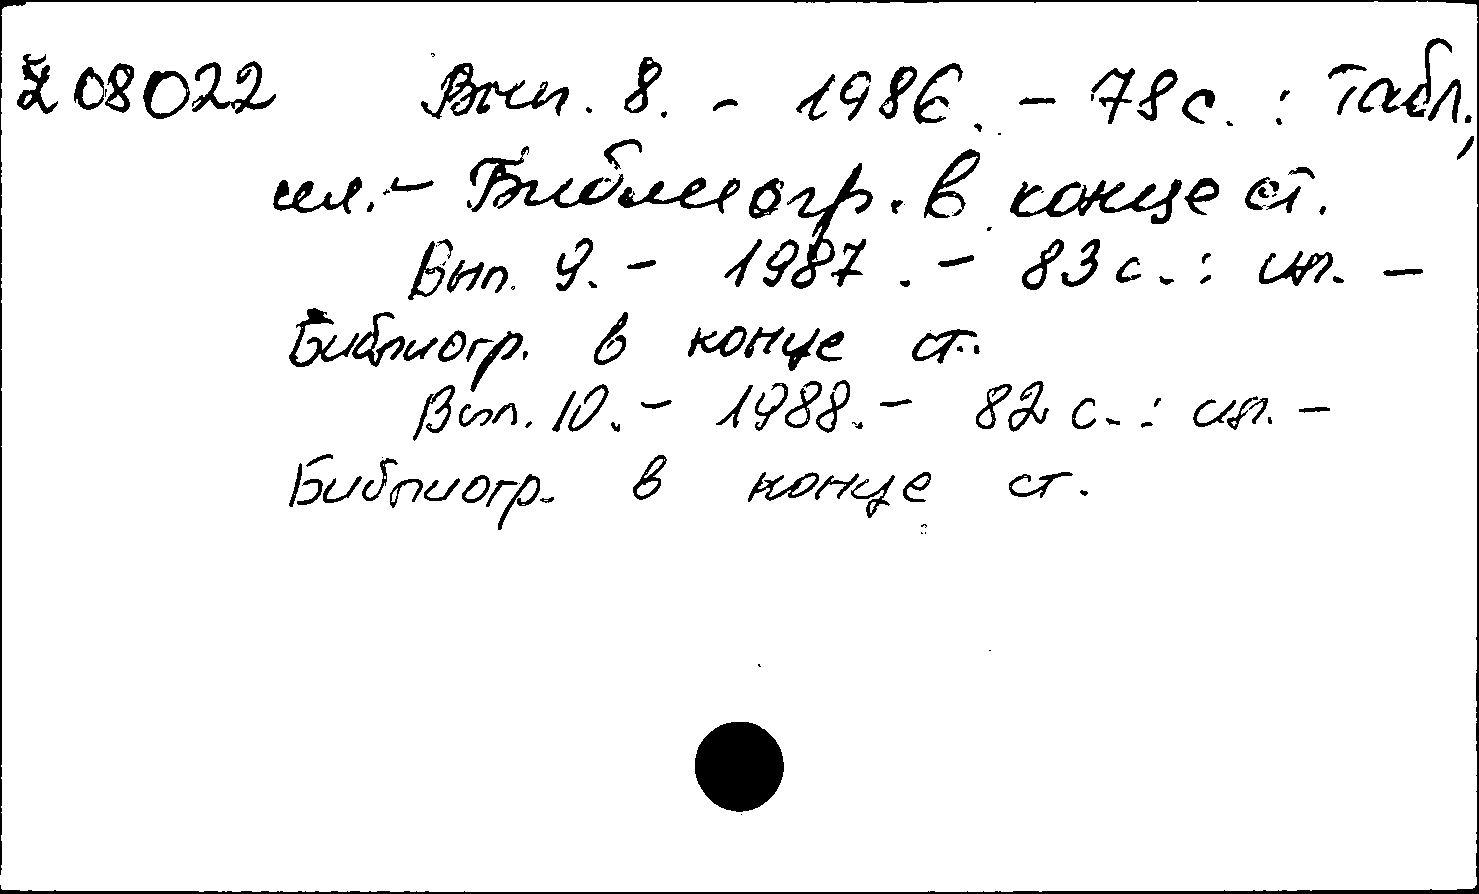 Z 08022 Вып. 8. - 1986. - 78 с. : Табл.,
ил. - Библиогр. в конце ст.
Вып. 9. - 1987. - 83 с. : ил. -
Библиогр. в конце ст.
Вып. 10. - 1988. - 82 с. : ил. -
Библиогр. в конце ст.